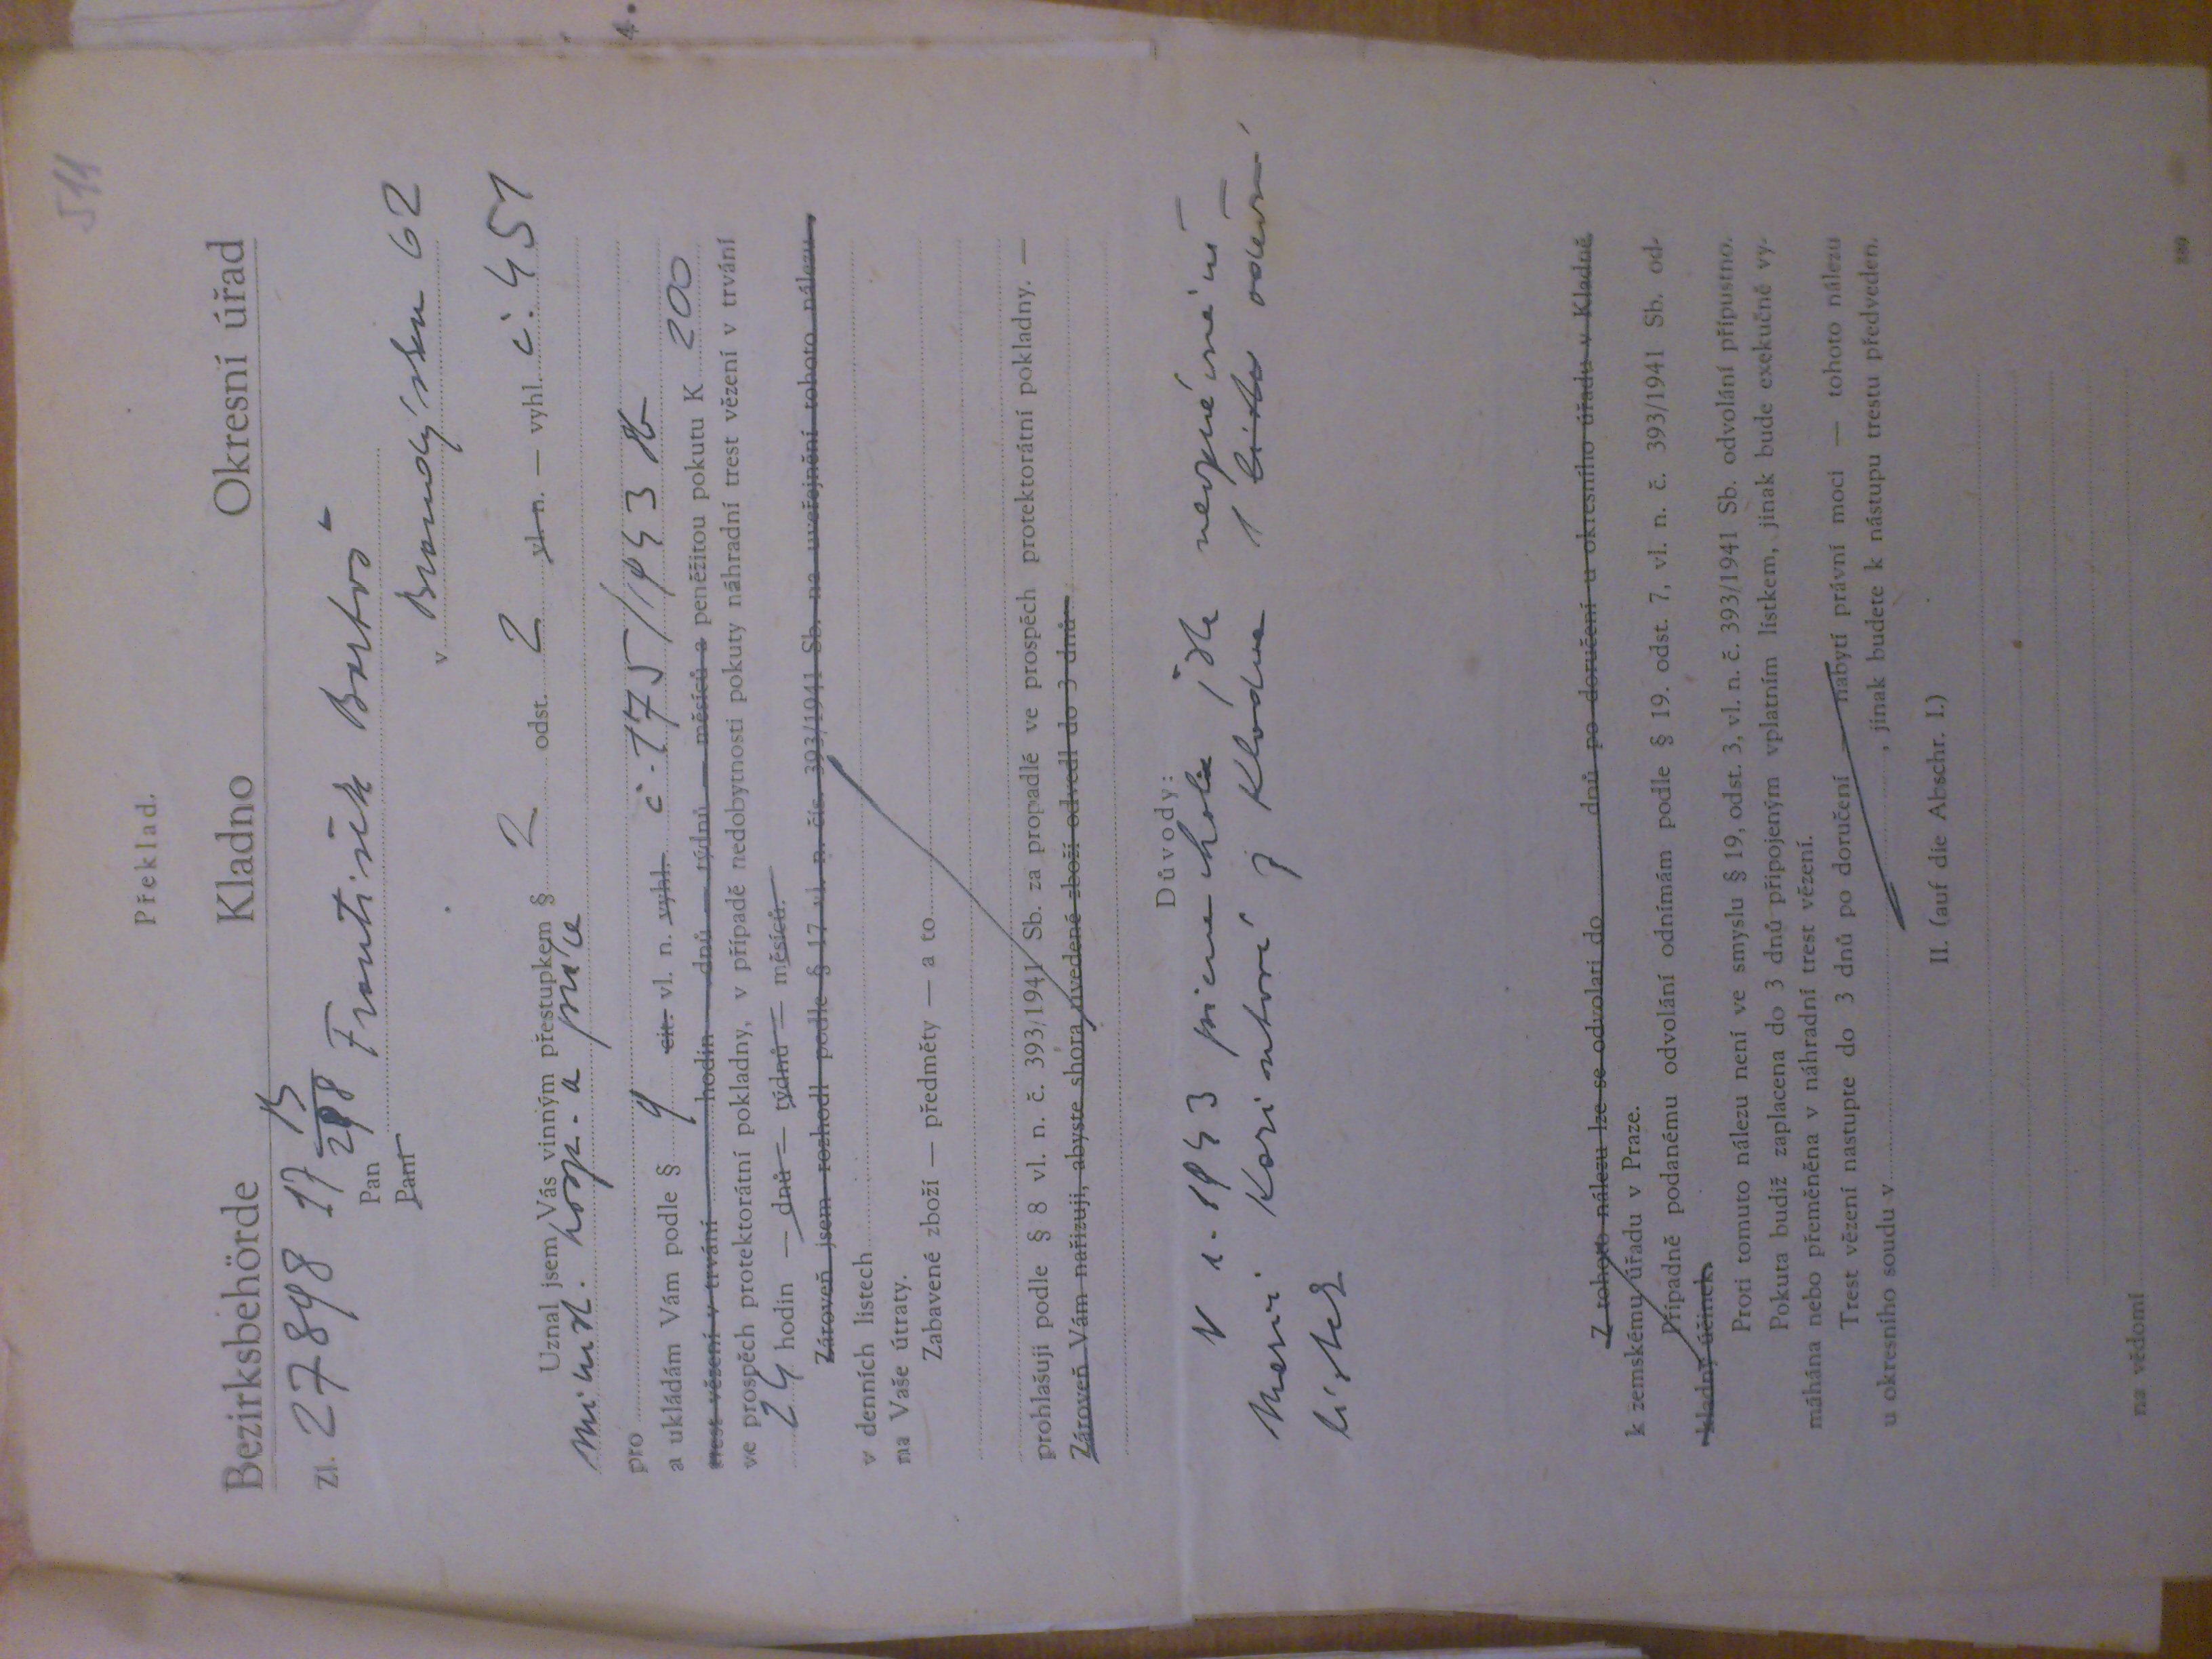 511
Překlad.
Bezirksbehörde Kladno Okresní úřad
Zl. 27898 17
Pan František Bartoš
Paní
v Brandýsku 62
Uznal jsem Vás vinným přestupkem § 2 odst. 2 vl. n. — vyhl. č. 451
minist. hosp. a práce
pro
a ukládám Vám podle § 9 cit. vl. n. vyhl. č. 175/1943 Sb
trest vězení v trvání hodin — dnů — týdnů — měsíců a peněžitou pokutu K 200
ve prospěch protektorátní pokladny, v případě nedobytnosti pokuty náhradní trest vězení v trvání
24 hodin — dnů — týdnů — měsíců.
Zároveň jsem rozhodl podle § 17 vl. n. čís. 393/1941 Sb. na uveřejnění tohoto nálezu
v denních listech
na Vaše útraty.
Zabavené zboží — předměty — a to
prohlašuji podle § 8 vl. n. č. 393/1941 Sb. za propadlé ve prospěch protektorátní pokladny. —
Zároveň Vám nařizuji, abyste shora uvedené zboží odvedl do 3 dnů
Důvody:
V r. 1943 jste neoprávněně
Marii Korintové z Kladna 1 oděvní
lístek
Z tohoto nálezu lze se odvolati do dnů po doručení u okresního úřadu v Kladně
k zemskému úřadu v Praze.
Případně podanému odvolání odnímám podle § 19. odst. 7, vl. n. č. 393/1941 Sb. od-
kladný účinek.
Proti tomuto nálezu není ve smyslu § 19, odst. 3, vl. n. č. 393/1941 Sb. odvolání přípustno.
Pokuta budiž zaplacena do 3 dnů připojeným vplatním lístkem, jinak bude exekučně vy-
máhána nebo přeměněna v náhradní trest vězení.
Trest vězení nastupte do 3 dnů po doručení — nabytí právní moci — tohoto nálezu
u okresního soudu v , jinak budete k nástupu trestu předveden.
II. (auf die Abschr. I.)
na vědomí